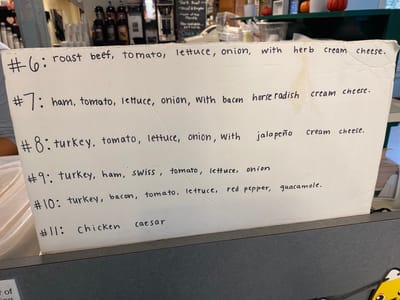 #6: roast beef, tomato, lettuce, onion, with herb cream cheese.
#7: ham, tomato, lettuce, onion, with bacon horseradish cream cheese.
#8: turkey, tomato, lettuce, onion, with jalapeño cream cheese.
#9: turkey, ham, swiss, tomato, lettuce, onion
#10: turkey, bacon, tomato, lettuce, red pepper, guacamole.
#11: chicken caesar
of